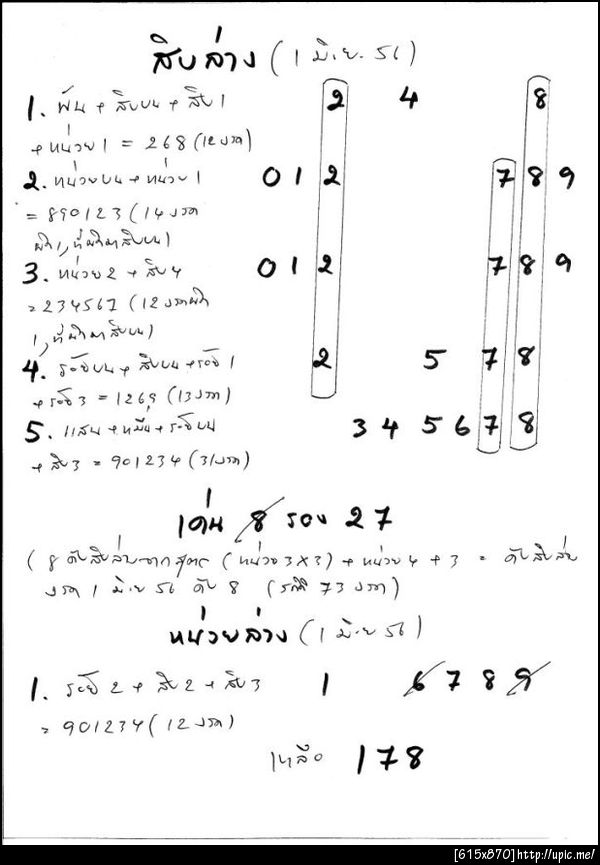 สิบล่าง (1 มิ.ย. 56)
1. พัน + สิบบน + สิบ 1 2 4 8
+ หน่วย 1 = 268 (12 งวด)
2. หน่วยบน + หน่วย 1 0 1 2 7 8 9
= 890123 (14 งวด
ผิด 1, ที่ผิดมาสิบบน)
3. หน่วย 2 + สิบ 4 0 1 2 7 8 9
= 234567 (12 งวดผิด
1, ที่ผิดมาสิบบน)
4. ร้อยบน + สิบบน + ร้อย 1 2 5 7 8
+ ร้อย 3 = 1269 (13 งวด)
5. แสน + หมื่น + ร้อยบน 3 4 5 6 7 8
+ สิบ 3 = 901234 (31 งวด)
เด่น 8 รอง 2 7
(8 ดับสิบล่างจากสูตร (หน่วย 3 X 3) + หน่วย 4 + 3 = ดับสิบล่าง
งวด 1 มิ.ย 56 ดับ 8 (สถิติ 73 งวด)
หน่วยล่าง (1 มิ.ย 56)
1. ร้อย 2 + สิบ 2 + สิบ 3 1 6 7 8 9
= 901234 (12 งวด)
เหลือ 1 7 8
[615x870]http://upic.me/